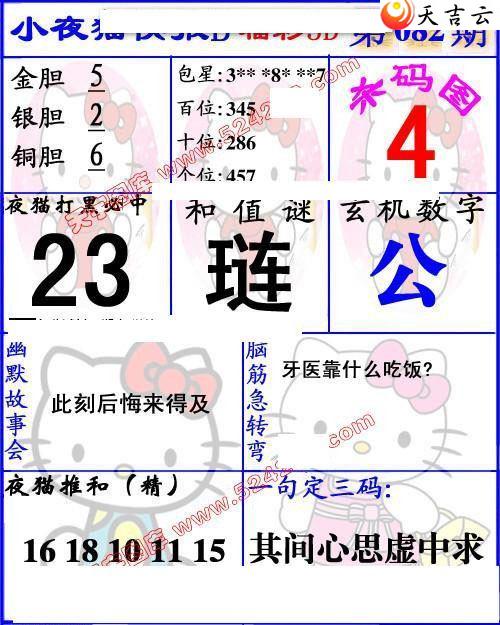 天吉云
小夜猫快报D 福彩3D 第082期
金胆 5
银胆 2
铜胆 6
包星:3** *8* **7
百位:345
十位:286
个位:457
来码图
4
夜猫打黑必中
23
和值谜
琏
玄机数字
公
幽默故事会
此刻后悔来得及
脑筋急转弯
牙医靠什么吃饭?
夜猫推和（精）
16 18 10 11 15
一句定三码:
其间心思虚中求